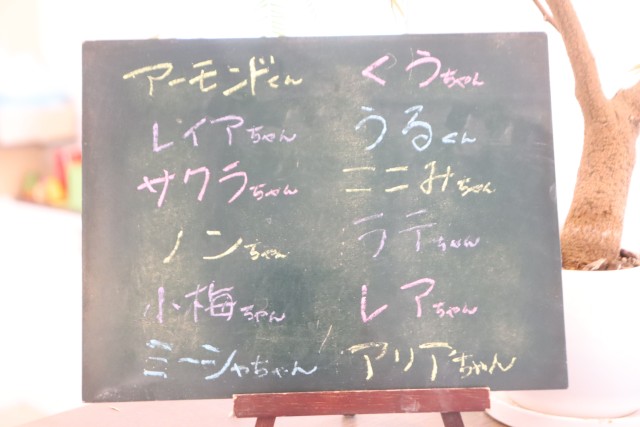 アーモンドくん
レイアちゃん
サクラちゃん
ノンちゃん
小梅ちゃん
ミーシャちゃん
くうちゃん
うるくん
ここみちゃん
ラテちゃん
レアちゃん
アリアちゃん